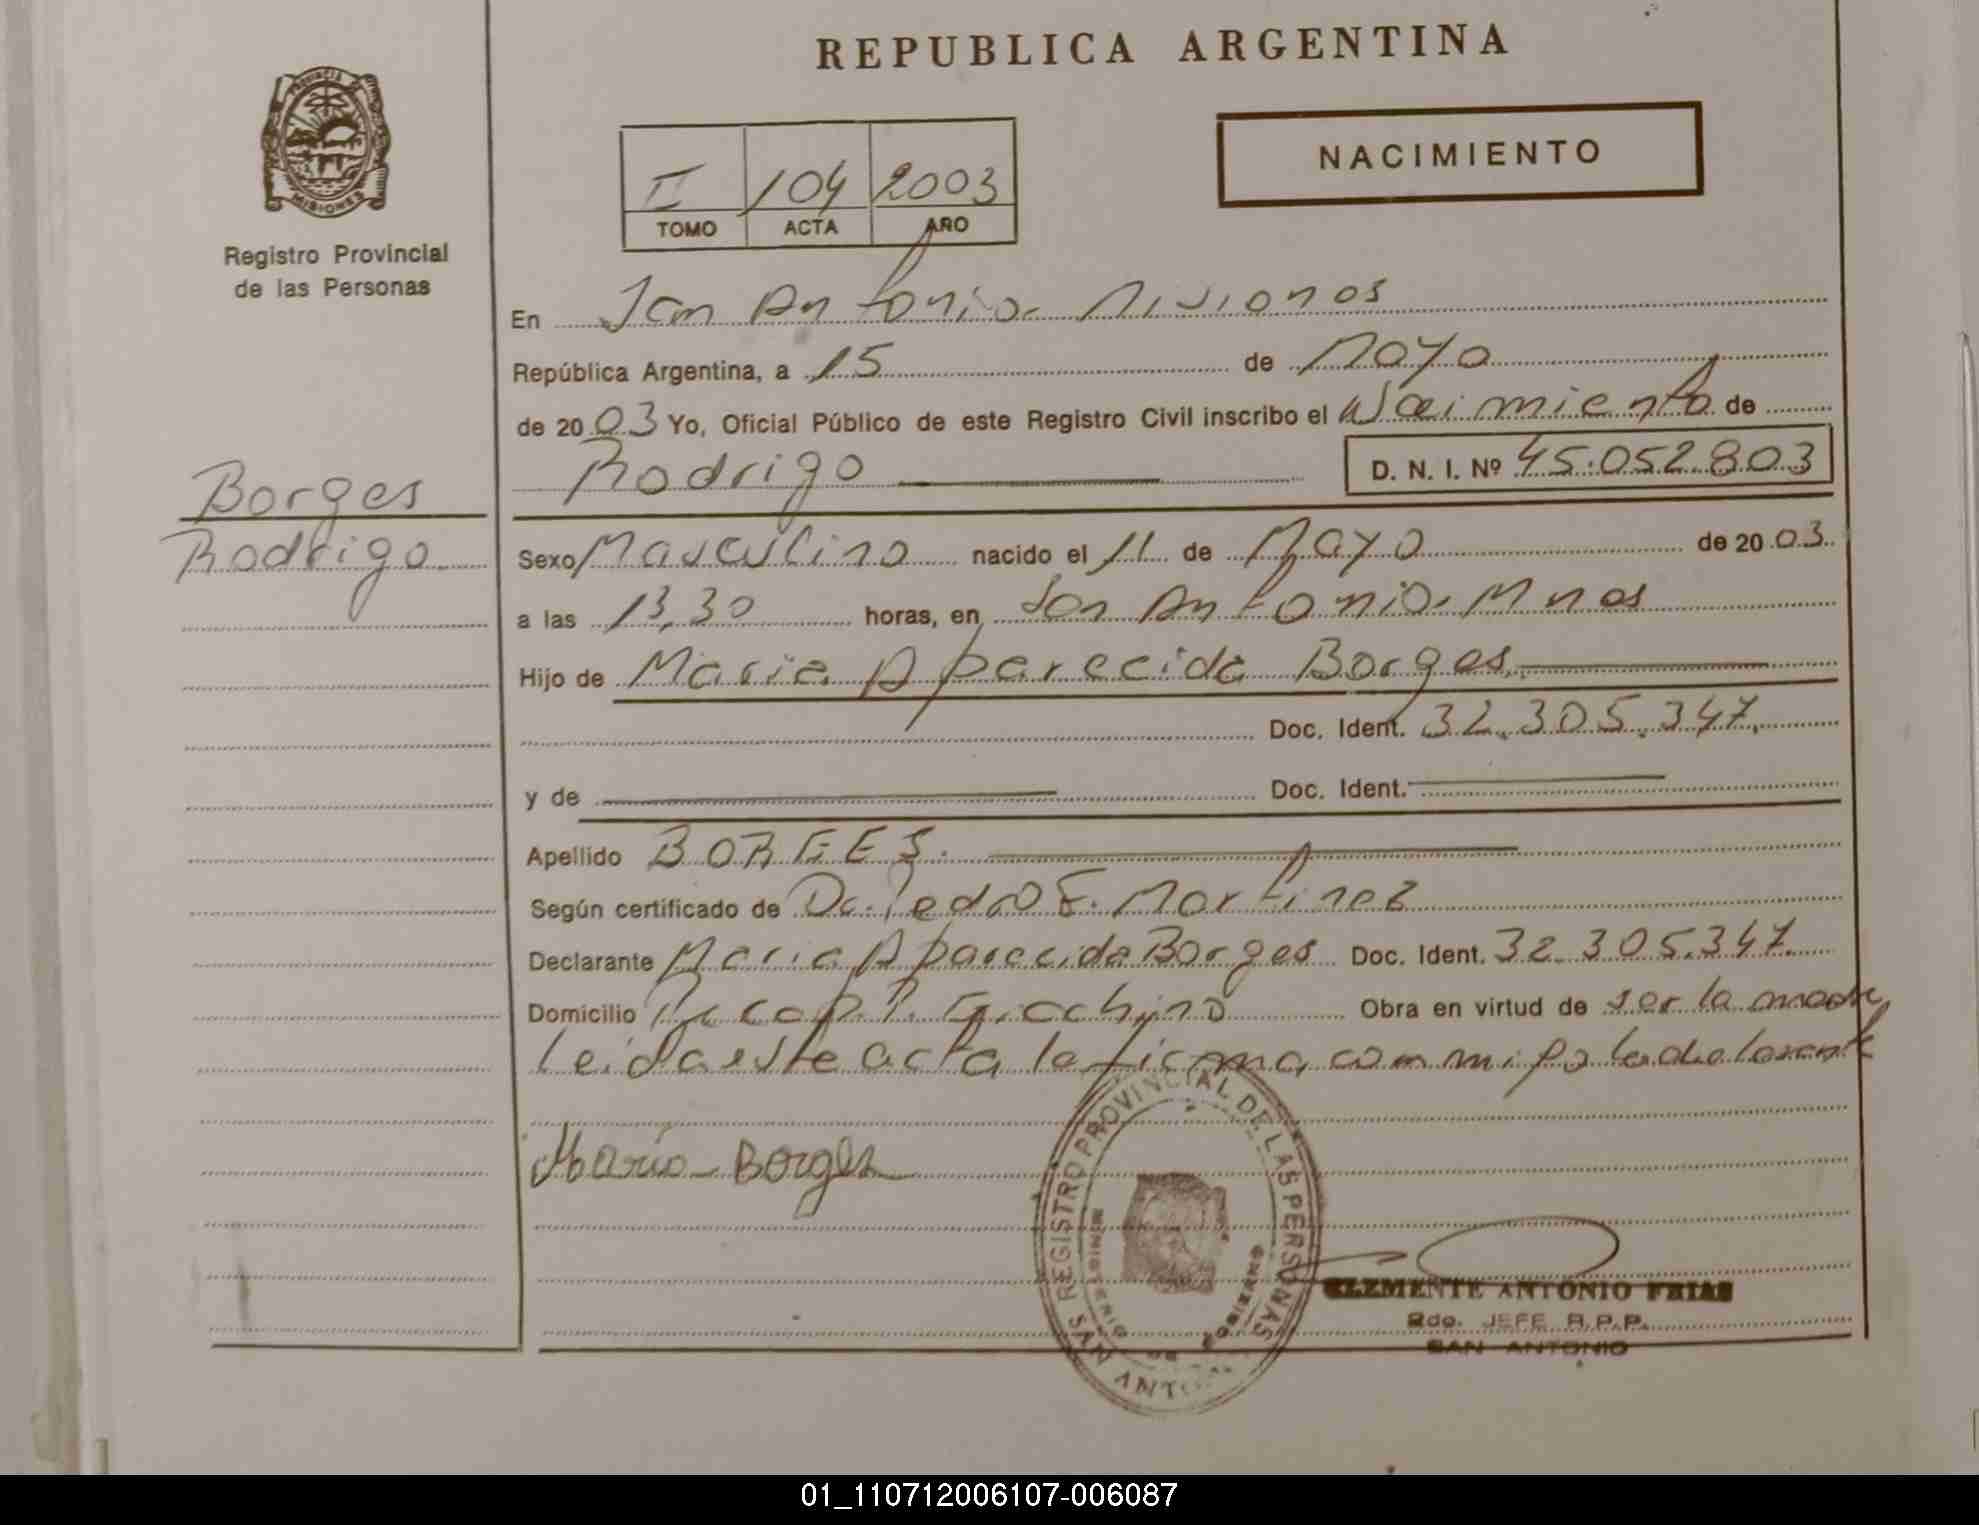 REPUBLICA ARGENTINA
PROVINCIA DE
MISIONES
Registro Provincial
de las Personas
NACIMIENTO
II 104 2003
TOMO ACTA AÑO
En San Antonio. Misiones
República Argentina, a 15 de Mayo
de 2003 Yo, Oficial Público de este Registro Civil inscribo el Nacimiento de
Rodrigo D. N. I. Nº 45.052.803
Borges
Rodrigo
Sexo Masculino nacido el 11 de Mayo de 2003
a las 13,30 horas, en San Antonio. Mnes
Hijo de Maria Aparecida Borges
Doc. Ident. 32.305.347.
y de Doc. Ident.
Apellido BORGES.
Según certificado de Dr. Pedro E. Martinez
Declarante Maria Aparecida Borges Doc. Ident. 32.305.347.
Domicilio Giachino Obra en virtud de ser la madre,
Leida este acta la firma com mi
Maria Borges
REGISTRO PROVINCIAL DE LAS PERSONAS
MINISTERIO DE GOBIERNO
SAN ANTONIO
CLEMENTE ANTONIO FRIAS
2do. JEFE R.P.P.
SAN ANTONIO
01_110712006107-006087